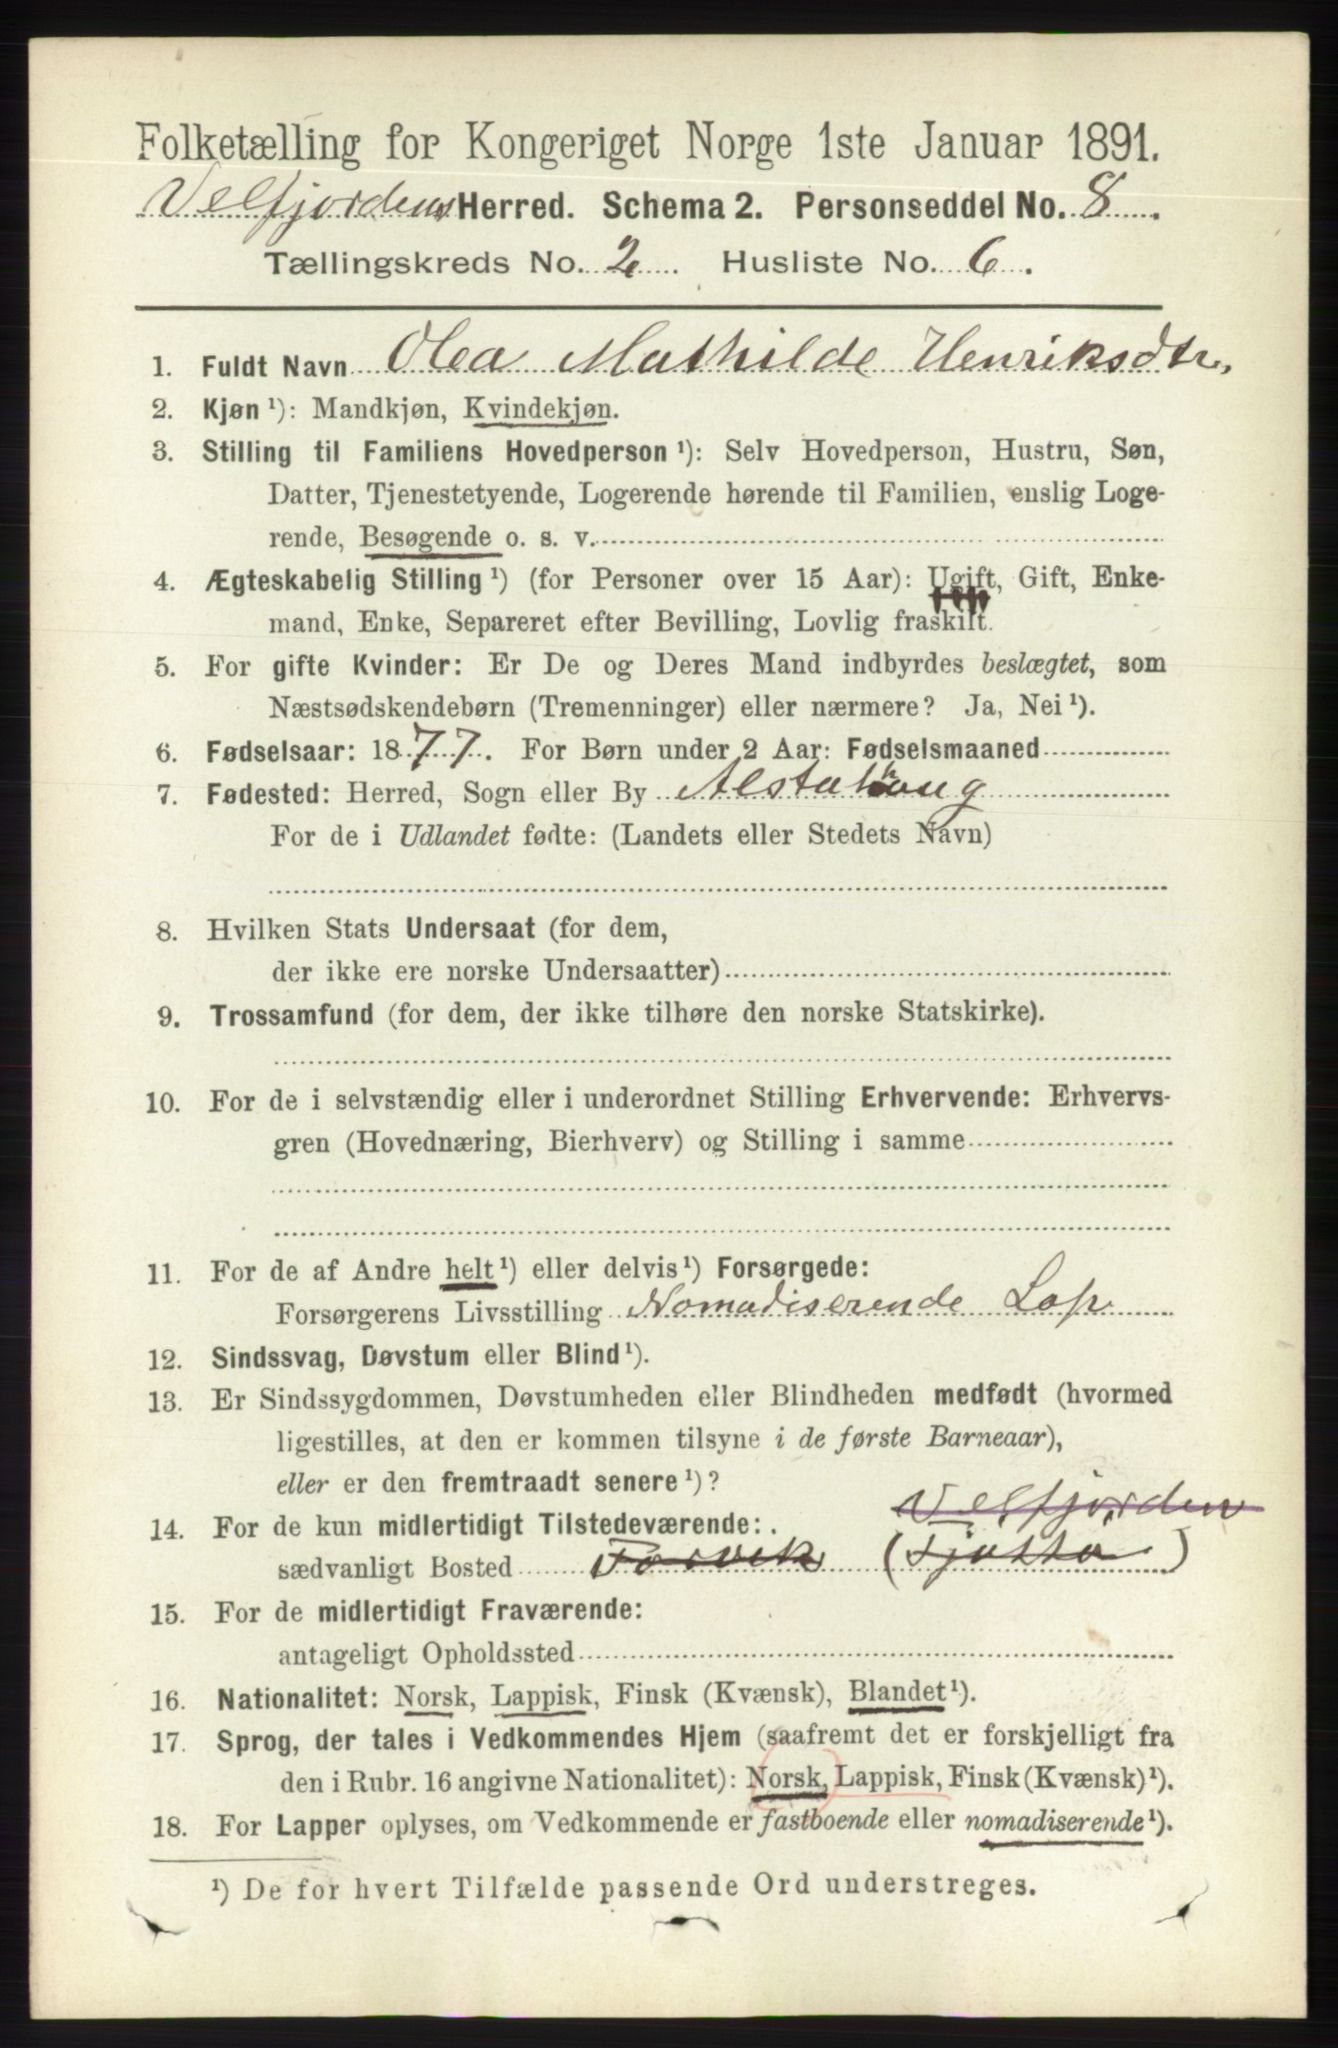 Folketælling for Kongeriget Norge 1ste Januar 1891.
Velfjordens Herred. Schema 2. Personseddel No. 8.
Tællingskreds No. 2. Husliste No. 6.
1. Fuldt Navn Olea Mathilde Henriksdtr,
2. Kjøn ¹): Mandkjøn, Kvindekjøn.
3. Stilling til Familiens Hovedperson ¹): Selv Hovedperson, Hustru, Søn,
Datter, Tjenestetyende, Logerende hørende til Familien, enslig Loge-
rende, Besøgende o. s. v.
4. Ægteskabelig Stilling ¹) (for Personer over 15 Aar): Ugift, Gift, Enke-
mand, Enke, Separeret efter Bevilling, Lovlig fraskilt.
5. For gifte Kvinder: Er De og Deres Mand indbyrdes beslægtet, som
Næstsødskendebørn (Tremenninger) eller nærmere? Ja, Nei ¹).
6. Fødselsaar: 1877. For Børn under 2 Aar: Fødselsmaaned
7. Fødested: Herred, Sogn eller By Alstahaug
For de i Udlandet fødte: (Landets eller Stedets Navn)
8. Hvilken Stats Undersaat (for dem,
der ikke ere norske Undersaatter)
9. Trossamfund (for dem, der ikke tilhøre den norske Statskirke).
10. For de i selvstændig eller i underordnet Stilling Erhvervende: Erhvervs-
gren (Hovednæring, Bierhverv) og Stilling i samme
11. For de af Andre helt ¹) eller delvis ¹) Forsørgede:
Forsørgerens Livsstilling Nomadiserende Lap
12. Sindssvag, Døvstum eller Blind ¹).
13. Er Sindssygdommen, Døvstumheden eller Blindheden medfødt (hvormed
ligestilles, at den er kommen tilsyne i de første Barneaar),
eller er den fremtraadt senere ¹)?
Velfjorden
14. For de kun midlertidigt Tilstedeværende:
sædvanligt Bosted Forvik (Tjøttø)
15. For de midlertidigt Fraværende:
antageligt Opholdssted
16. Nationalitet: Norsk, Lappisk, Finsk (Kvænsk), Blandet ¹).
17. Sprog, der tales i Vedkommendes Hjem (saafremt det er forskjelligt fra
den i Rubr. 16 angivne Nationalitet): Norsk, Lappisk, Finsk (Kvænsk) ¹).
18. For Lapper oplyses, om Vedkommende er fastboende eller nomadiserende ¹).
¹) De for hvert Tilfælde passende Ord understreges.